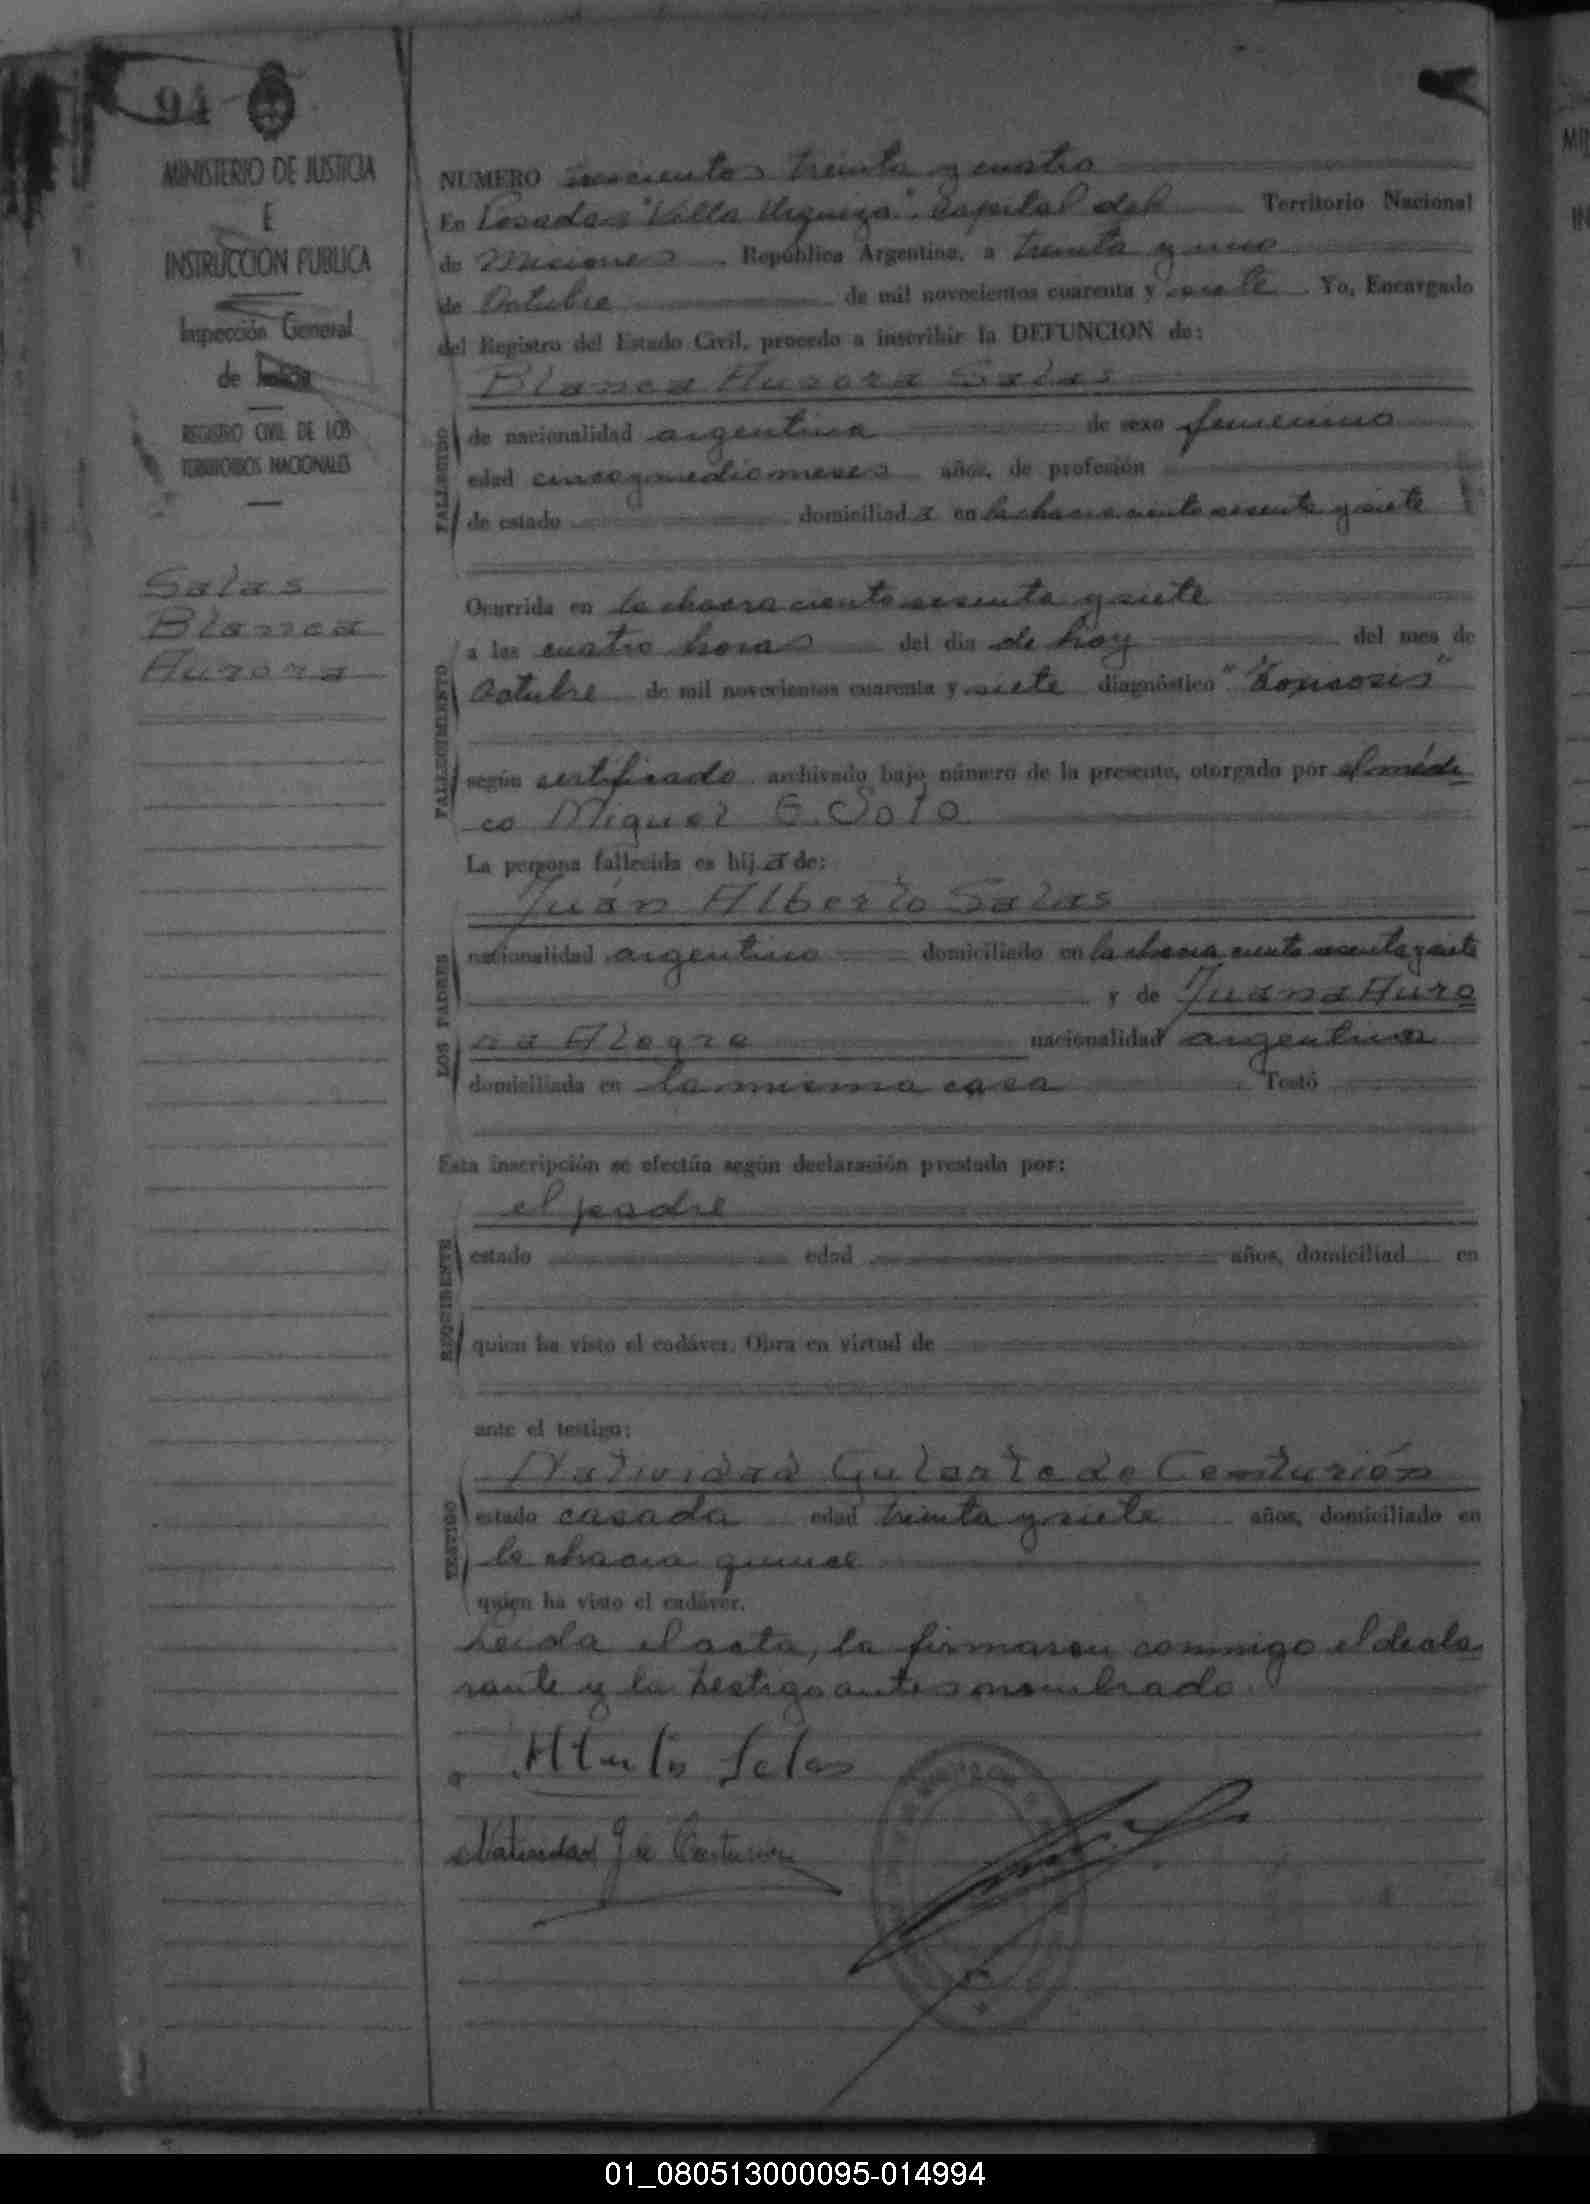 94
MINISTERIO DE JUSTICIA
E
INSTRUCCION PUBLICA
Inspección General
de Justicia
REGISTRO CIVIL DE LOS
TERRITORIOS NACIONALES
Salas
Blanca
Aurora
NUMERO trescientos treinta y cuatro
En Posadas "Villa Urquiza". Capital del Territorio Nacional
de Misiones, República Argentina, a treinta y uno
de Octubre de mil novecientos cuarenta y siete Yo, Encargado
del Registro del Estado Civil, procedo a inscribir la DEFUNCION de:
Blanca Aurora Salas
FALLECIDO
de nacionalidad argentina de sexo femenino
edad cinco y medio meses años, de profesión
de estado domiciliada en la chacra ciento sesenta y siete
Ocurrida en la chacra ciento sesenta y siete
FALLECIMIENTO
a las cuatro horas del día de hoy del mes de
Octubre de mil novecientos cuarenta y siete diagnóstico "Toxicosis"
según certificado archivado bajo número de la presente, otorgado por el médi
co Miguel E. Soto
La persona fallecida es hija de:
Juán Alberto Salas
LOS PADRES
nacionalidad argentino domiciliado en la chacra ciento sesenta y siete
y de Juana Auro
ra Alegre nacionalidad argentina
domiciliada en la misma casa Testó
Esta inscripción se efectúa según declaración prestada por:
el padre
REQUIRENTE
estado edad años, domiciliad en
quien ha visto el cadáver. Obra en virtud de
ante el testigo:
Natividad Gularte de Centurión
TESTIGO
estado casada edad treinta y siete años, domiciliado en
la chacra quince
quien ha visto el cadáver.
Leída el acta, la firmaron conmigo el decla
rante y la testigo antes nombrado.
Alberto Salas
Natividad G de Centurión
01_080513000095-014994